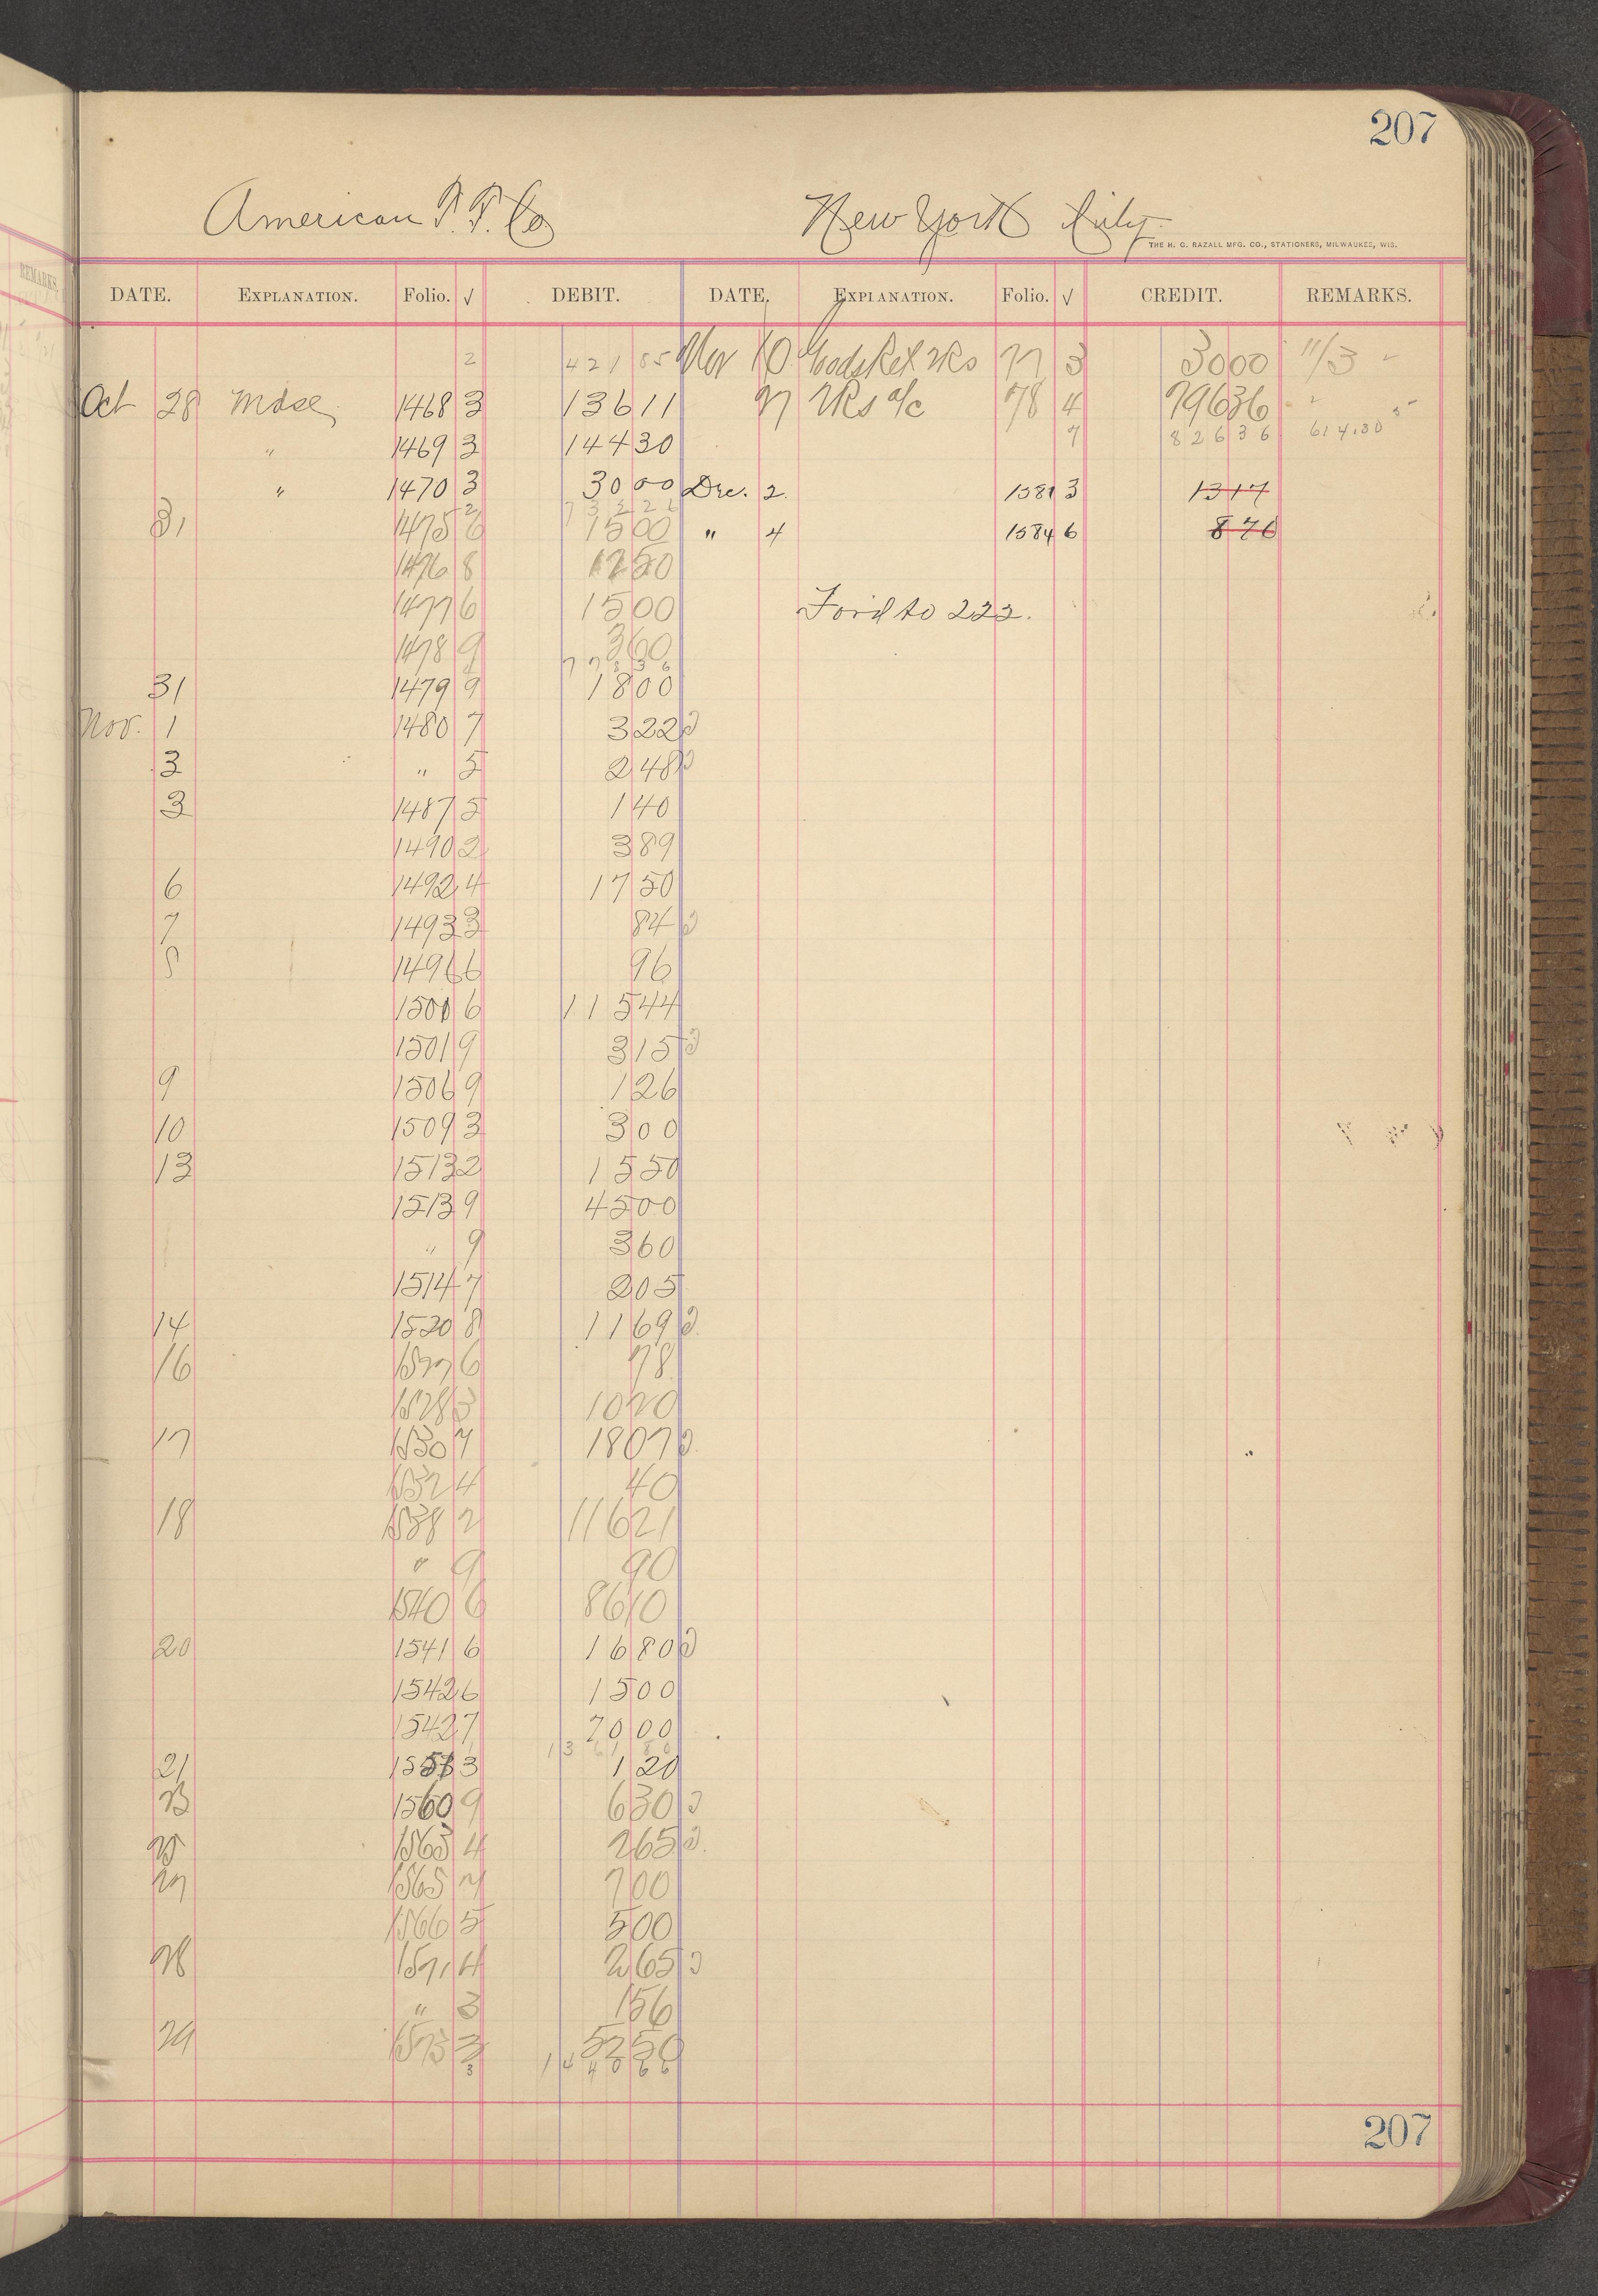 207
American T. T. Co New York City
THE H. G. RAZALL MFG. CO., STATIONERS, MILWAUKEE, WIS.
DATE. EXPLANATION. Folio. √ DEBIT. DATE. EXPLANATION. Folio. √ CREDIT. REMARKS.
2 421 85 Nov 10 Goods Ret 77 3 3000 11/3
Oct 28 Mdse 1468 3 13611 27 a/c 78 4 79636
" 1469 3 14430 7 82636 614.30
" 1470 3 3000 Dec. 2 1581 3 1317
2 73226
31 1475 6 1500 " 4 1584 6 870
1476 8 1250
1477 6 1500 For'd to 222.
1478 9 360
77836
31 1479 9 1800
Nov. 1 1480 7 322
3 " 5 248
3 1487 5 140
1490 2 389
6 1492 4 1750
7 1493 3 84
8 1496 6 96
1500 6 11544
1501 9 315
9 1506 9 126
10 1509 3 300
13 1513 2 1550
1513 9 4500
" 9 360
1514 7 205
14 1520 8 1169
16 1527 6 78
1528 3 1020
17 1530 7 1807
1532 4 40
18 1538 2 11621
" 9 90
1540 6 8610
20 1541 6 1680
1542 6 1500
1542 7 7000
13 61 80
21 3 120
23 1560 9 630
25 1563 4 265
27 1565 7 700
1566 5 500
28 1571 4 265
" 3 156
29 1573 3 5250
3 144066
207